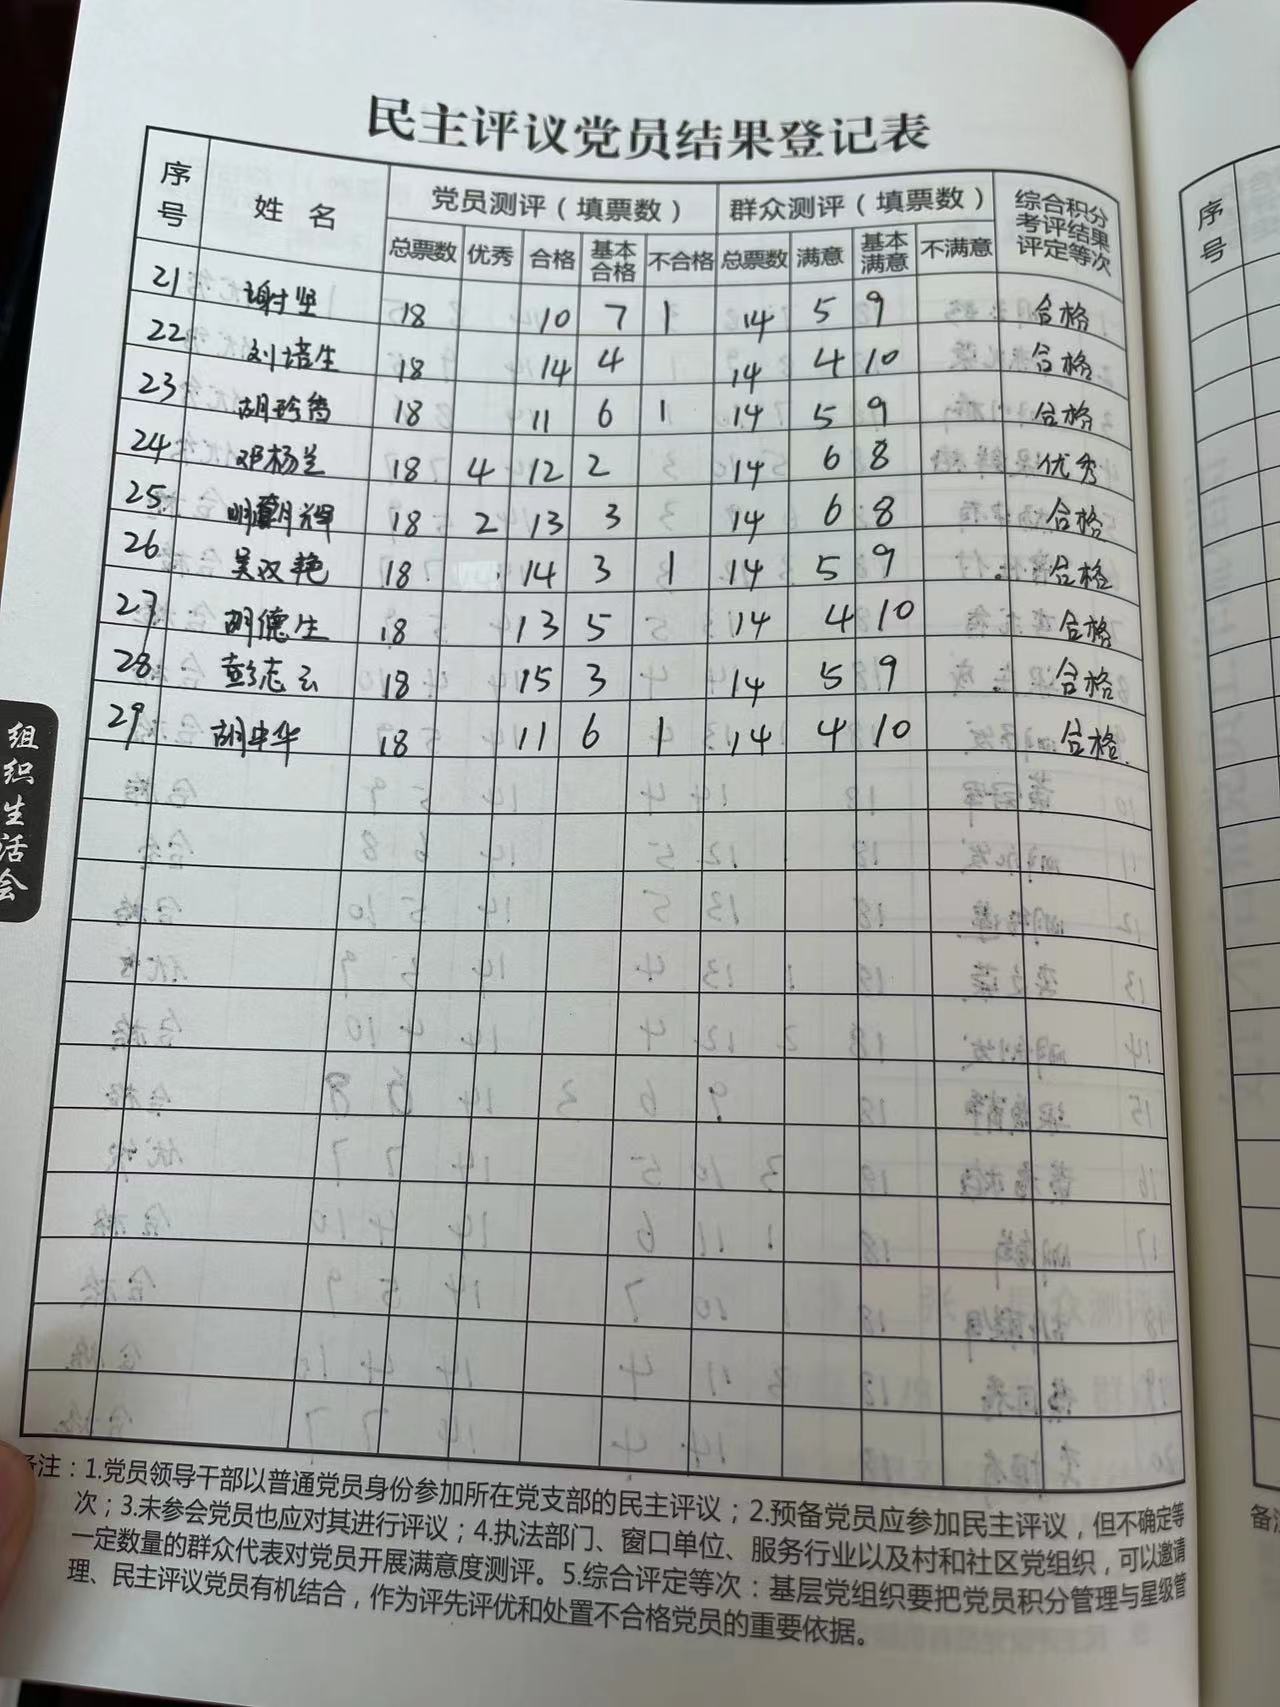 民主评议党员结果登记表
序号 姓名 党员测评（填票数） 群众测评（填票数） 综合积分考评结果评定等次
总票数 优秀 合格 基本合格 不合格 总票数 满意 基本满意 不满意
21 谢坚 18 10 7 1 14 5 9 合格
22 刘培生 18 14 4 14 4 10 合格
23 胡珍 18 11 6 1 14 5 9 合格
24 邓杨兰 18 4 12 2 14 6 8 优秀
25 明朝辉 18 2 13 3 14 6 8 合格
26 吴汉艳 18 14 3 1 14 5 9 合格
27 胡德生 18 13 5 14 4 10 合格
28 彭志云 18 15 3 14 5 9 合格
29 胡中华 18 11 6 1 14 4 10 合格
组织生活会
备注：1.党员领导干部以普通党员身份参加所在党支部的民主评议；2.预备党员应参加民主评议，但不确定等
次；3.未参会党员也应对其进行评议；4.执法部门、窗口单位、服务行业以及村和社区党组织，可以邀请
一定数量的群众代表对党员开展满意度测评。5.综合评定等次：基层党组织要把党员积分管理与星级管
理、民主评议党员有机结合，作为评先评优和处置不合格党员的重要依据。
序号